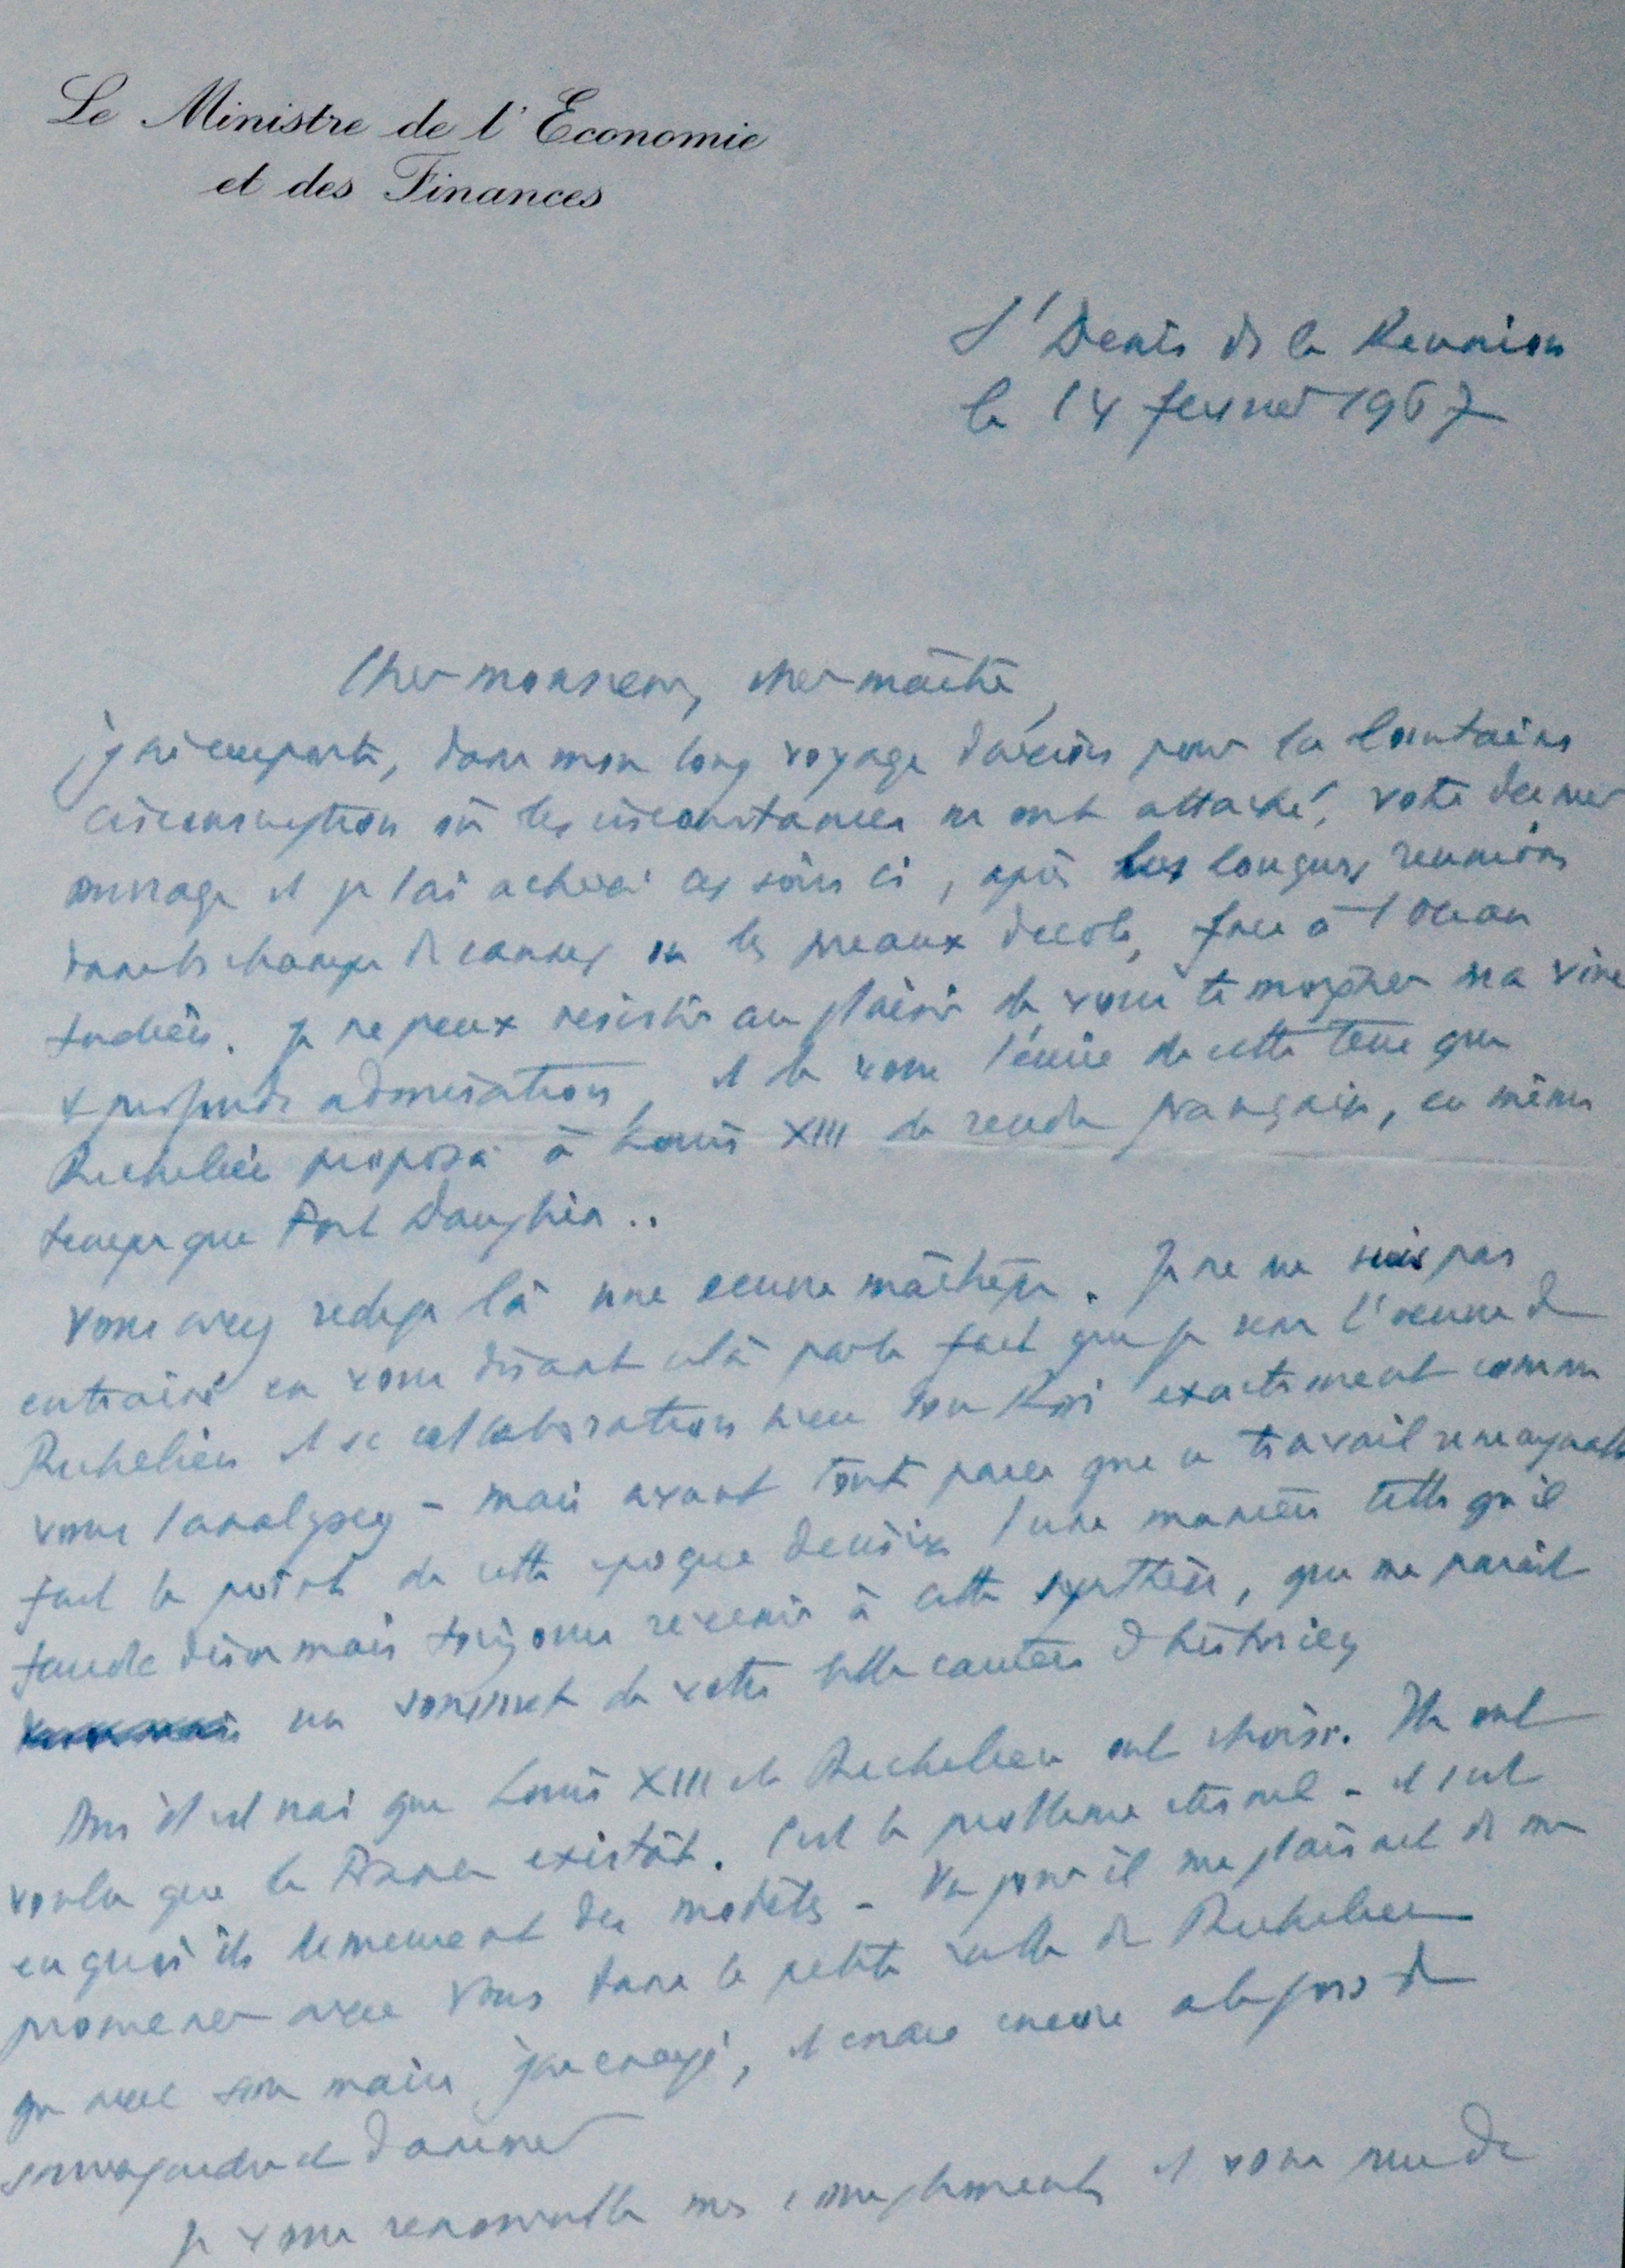 Le Ministre de l'Economie
et des Finances
St Denis de la Reunion
le 14 fevrier 1967
Cher monsieur, cher maître,
j'ai emporté, dans mon long voyage d'avion pour la lointaine
circonscription où les circonstances m'ont attaché, votre dernier
ouvrage et je l'ai achevé ces soirs ci, après les longues reunions
dans les champs de cannes ou les preaux d'ecole, face à l'Ocean
Indien. Je ne peux resister au plaisir de vous temoigner ma vive
& profonde admiration, et de vous l'écrire de cette terre que
Richelieu proposa à Louis XIII de rendre française, en même
temps que Fort Dauphin..
Vous avez redigé là une oeuvre maîtresse. Je ne me suis pas
entraîné en vous disant cela par le fait que je sens l'oeuvre de
Richelieu et sa collaboration avec son Roi exactement comme
vous l'analysez - mais avant tout parce que ce travail remarquable
fait le point de cette epoque decisive d'une manière telle qu'il
faudra désormais toujours revenir à cette synthèse, qui me paraît
un sommet de votre belle carrière d'historien
Oui il est vrai que Louis XIII et Richelieu ont choisi. Ils ont
voulu que la France existât. C'est le probleme eternel - et c'est
en quoi ils demeurent des modèles - Un jour il me plairait de me
promener avec vous dans la petite ville de Richelieu
que avec son maire j'ai essayé, et essaie encore à la fois de
sauvegarder et d'animer
Je vous renouvelle mes compliments et vous prie de